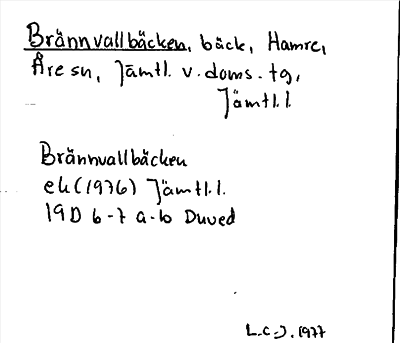 Brännvallbäcken, bäck, Hamre,
Åre sn, Jämtl. v. doms. tg,
Jämtl.l.
Brännvallbäcken
ek (1976) Jämtl.l.
19D 6-7 a-b Duved
L.C-J. 1977